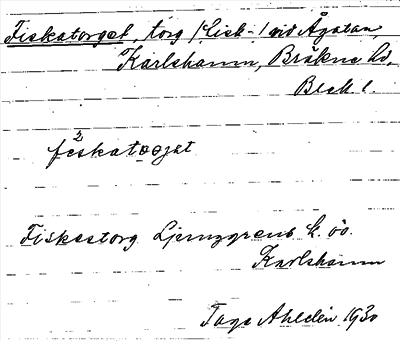 Fiskatorget, torg (Fisk-) vid Ågatan,
Karlshamn, Bräkne hd,
Blek. l.
2
feskatorjet
Fiskestorg Ljunggrens k. öv.
Karlshamn
Tage Ahldén 1930